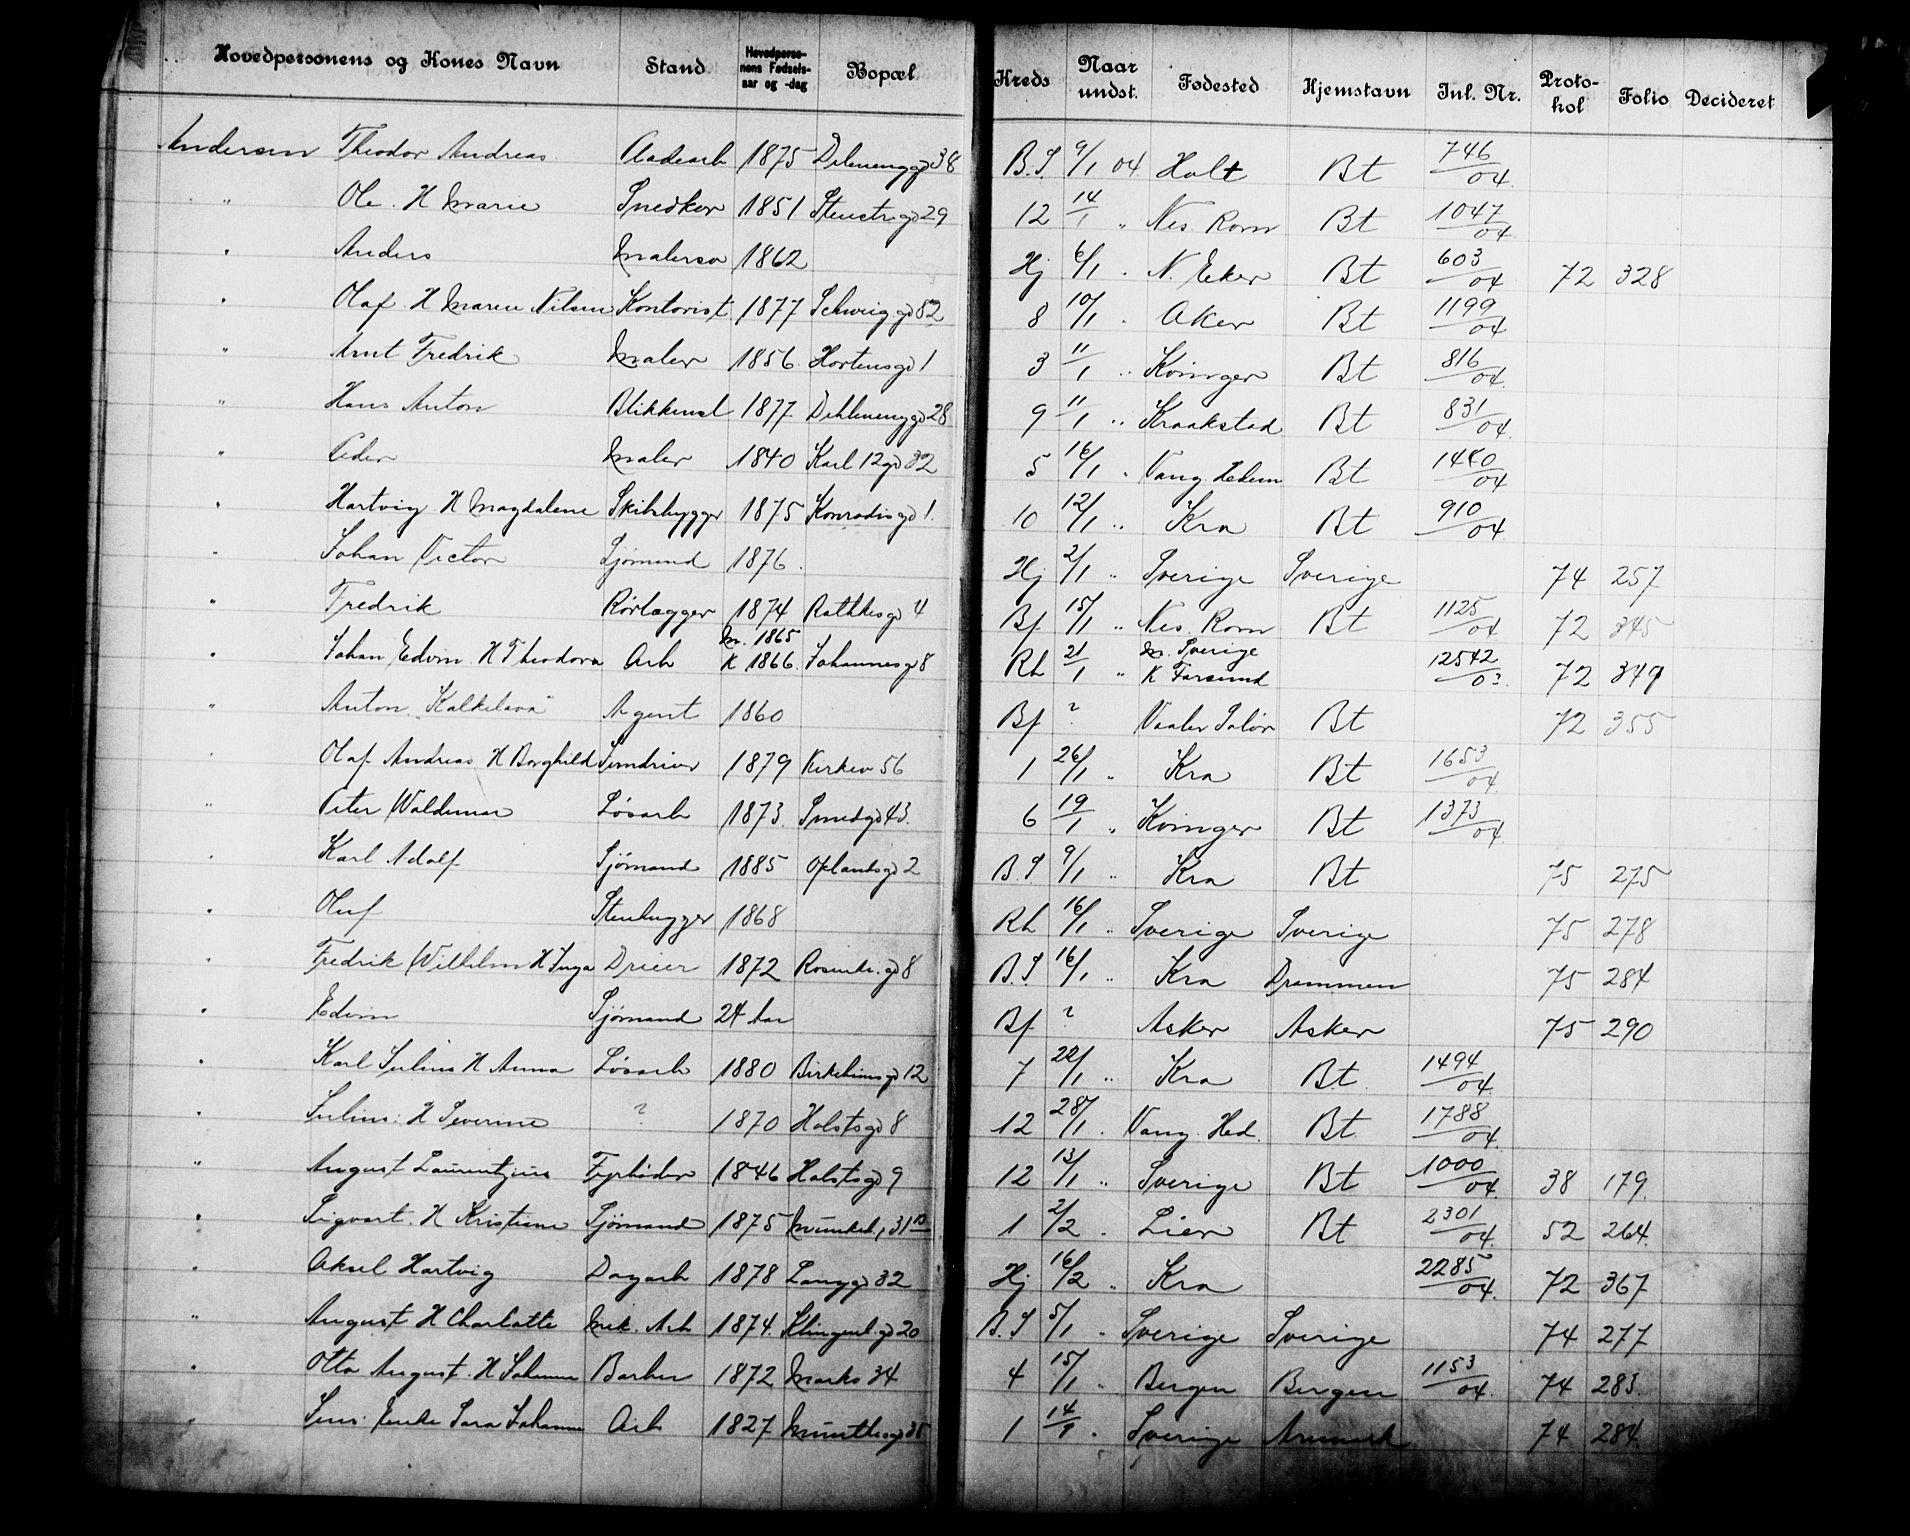 Hovedpersonens og Kones Navn Stand Hovedperso-nens Fødsels-aar og -dag Bopæl Kreds Naar undst. Fødested Hjemstavn Inl. Nr. Proto-kol Folio Decideret
Andersen Theodor Andreas 1875 38 B.S. 9/1 04 Holt Bt 746/04
" Ole. H Marie Snedker 1851 Stenstrgd 29 12 14/1 " Nes. Rom Bt 1047/04
" Anders Malersv 1862 Hj 6/1 " N. Eker Bt 603/04 72 328
" Olaf. H Maren Nilsen Kontorist 1877 Schweiggd 52 8 10/1 " Aker Bt 1199/04
" Arnt Fredrik Maler 1856. Hortensgd 1 3 11/1 " Kvinger Bt 816/04
" Hans Anton Blikkensl 1877 28 9 11/1 " Kraakstad Bt 831/04
" Peder Maler 1840 Karl 12gd 32 5 16/1 " Vang. Hedem Bt 1440/04
" Hartvig H Magdalene Skibsbygger 1875 Konradisgd 1. 10 12/1 " Kra Bt 910/04
" Johan Victor Sjømand 1876. Hj 2/1 " Sverige Sverige 74 257
" Fredrik Rørlægger 1874 Rathkesgd 4 Bf 15/1 " Nes. Rom Bt 1125/04 72 345
" Johan Edvin. H Theodora Arb M. 1865 K 1866. Johannesgd 8 Rh 21/1 " M. Sverige K Farsund 12542/03. 72 349
" Anton "Kalkelava" Agent 1860 Bf ? Vaaler Solør Bt 72 355
" Olaf Andreas H Borghild 1879 Kirkev 56 1 26/1 " Kra Bt 1653/04
" Peter Waldemar Løsarb 1873. Smedgd 43. 6 19/1 " Kvinger Bt 1373/04
" Karl Adolf Sjømand 1885 Oplandsgd 2 B.S 9/1 " Kra Bt 75 275
" Oluf Stenhugger 1868 Rh 16/1 " Sverige Sverige 75 278
" Fredrik Wilhelm H Inga Dreier 1872 Rosenkr.gd 8 B.S 16/1 " Kra Drammen 75 284
" Edvin Sjømand 24 Aar Bf ? Asker Asker 75 290
" Karl Julius H Anna Løsarb 1880 Birkelunsgd 12 7 22/1 " Kra Bt. 1494/04
" Julius: H Severine ? 1870 Holstsgd 8 12 28/1 . Vang. Hed. Bt. 1788/04
" August Laurentzius Fyrbøder 1846 Holstsgd 9 12 13/1 " Sverige Bt 1000/04 38 179.
" Sigvart. H Kristine Sjømand 1875 31 1 2/2 . Lier Bt 2301/04 52 264.
" Aksel Hartvig Dagarb 1878 Langgd 32 Hj 16/2 " Kra 2285/04 72 367
" August H Charlotte Mek. Arb 1874. Klingenb.gd 20 B.S 5/1 " Sverige Sverige 74 277
" Otto August. H Johanne Barber 1872 Markv 34 4 15/1 " Bergen Bergen 1153/04. 74 283.
" Jens: Enke Sara Johanne Arb 1827 Munthesgd 35 1 14/1 . Sverige Aremark 74 284.